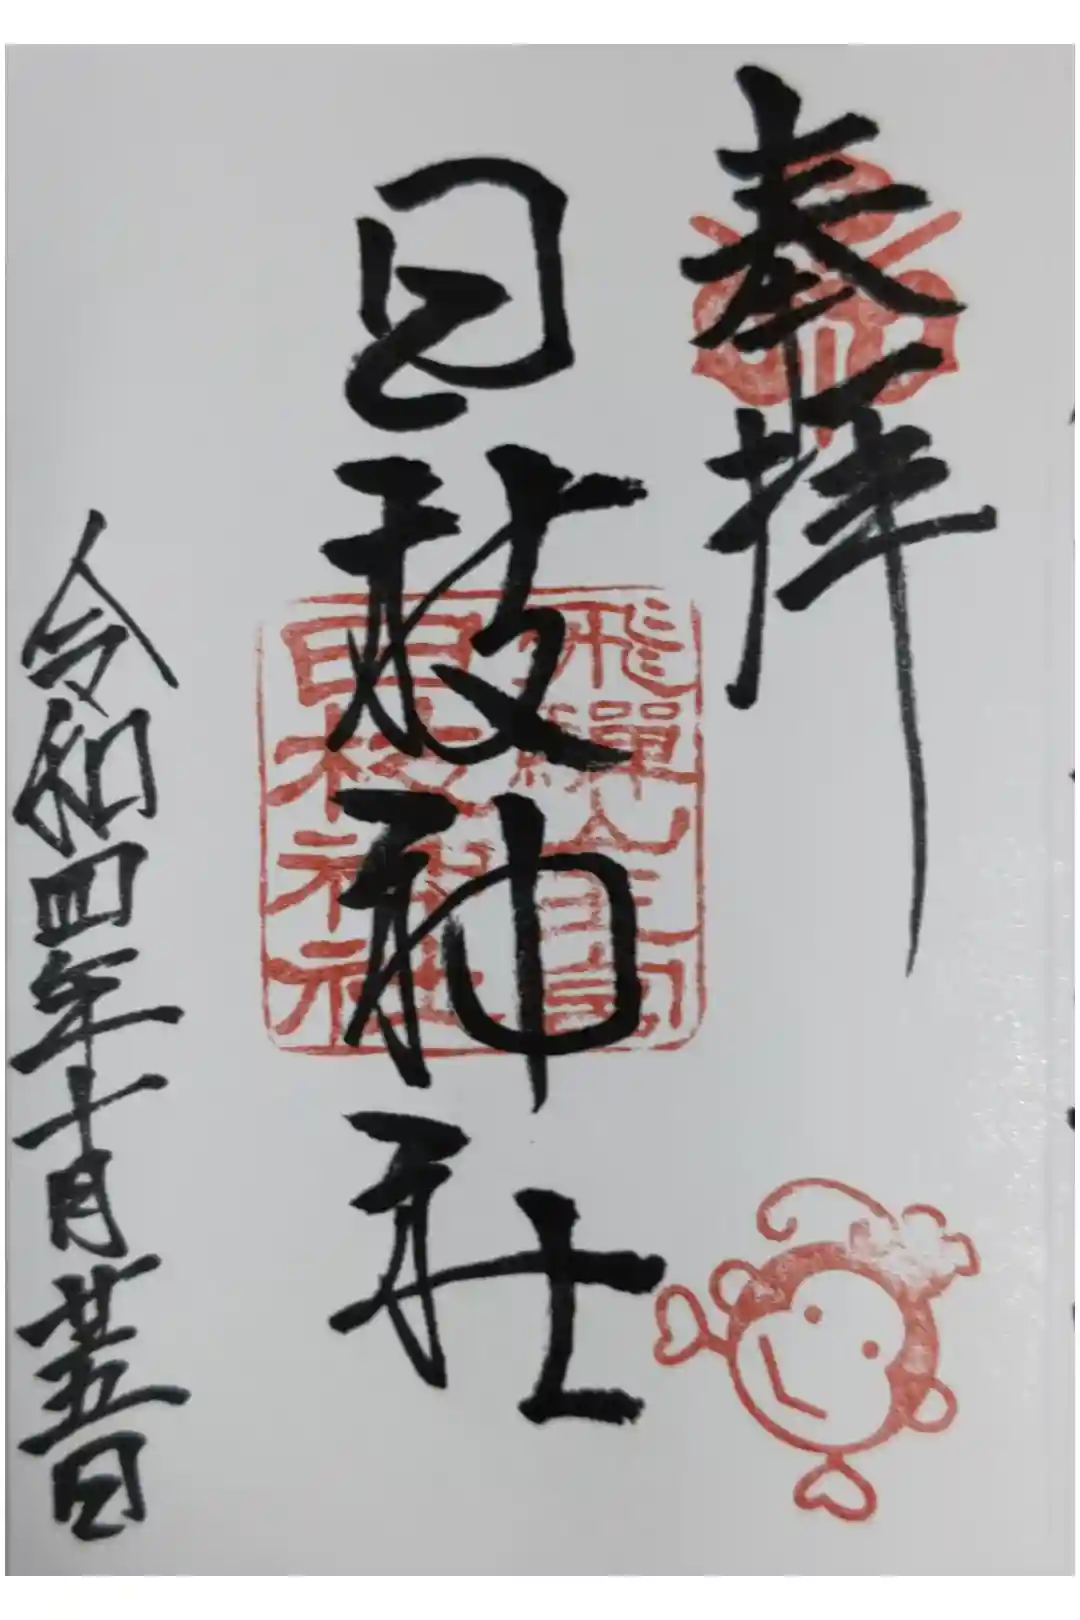 奉拝
日枝神社
飛驒山王宮
日枝神社
令和四年十月廿五日